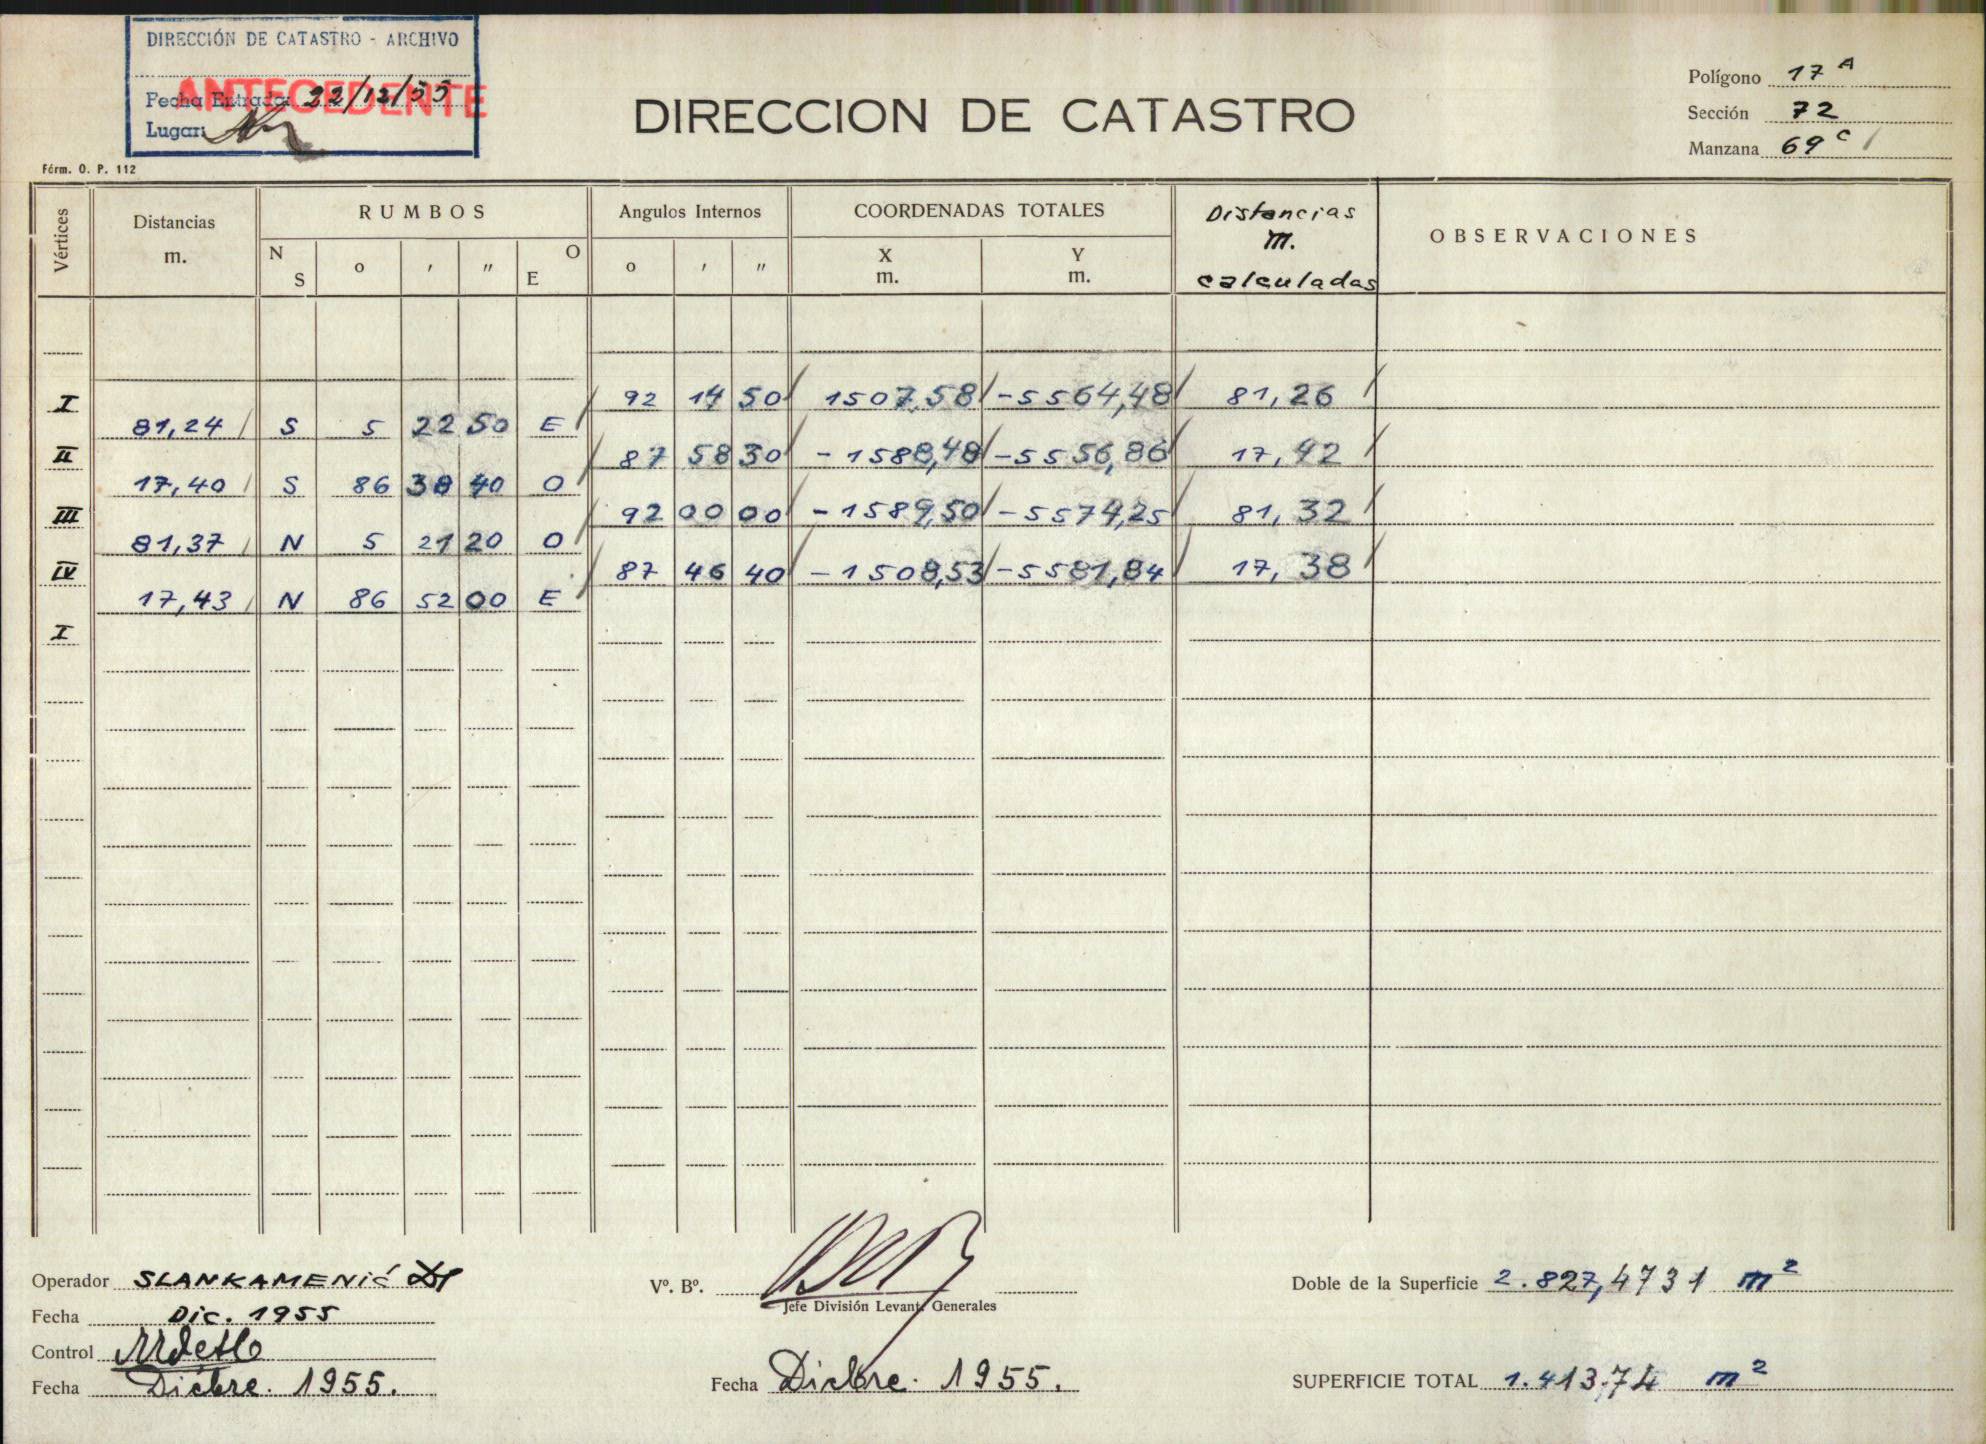 DIRECCIÓN DE CATASTRO - ARCHIVO
ANTECEDENTE
Fecha Entrada: 22/12/55
Lugar:
Fórm. O. P. 112
DIRECCION DE CATASTRO
Polígono 17 A
Sección 72
Manzana 69 c
Vértices Distancias m. RUMBOS Angulos Internos COORDENADAS TOTALES Distancias m. calculadas OBSERVACIONES
N S o ' " O E o ' " X m. Y m.
I 92 14 50 1507,58 -5564,48 81,26
81,24 S 5 22 50 E
II 87 58 30 -1588,48 -5556,86 17,42
17,40 S 86 38 40 O
III 92 00 00 -1589,50 -5574,25 81,32
81,37 N 5 21 20 O
IV 87 46 40 -1508,53 -5581,84 17,38
17,43 N 86 52 00 E
I
Operador SLANKAMENIĆ
Fecha Dic. 1955
Control
Fecha Dicbre. 1955.
Vº. Bº.
Jefe División Levant. Generales
Fecha Dicbre. 1955.
Doble de la Superficie 2.827,4731 m²
SUPERFICIE TOTAL 1.413,74 m²